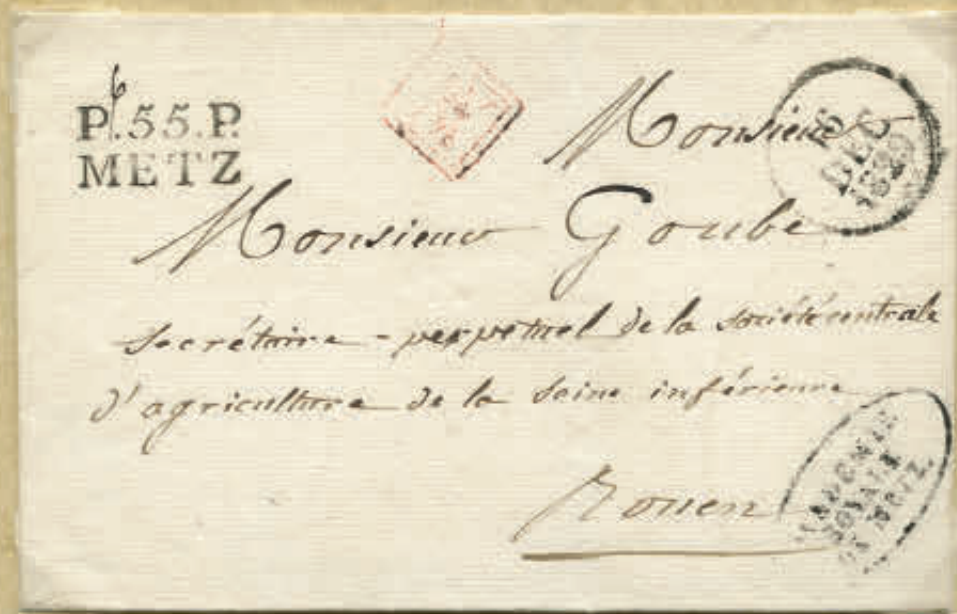 6
P.55.P.
METZ
Monsieur
DEC
1829
Monsieur Goube
secrétaire - perpétuel de la société centrale
d'agriculture de la Seine inférieure
Rouen
ACADEMIE
ROYALE
DE METZ.